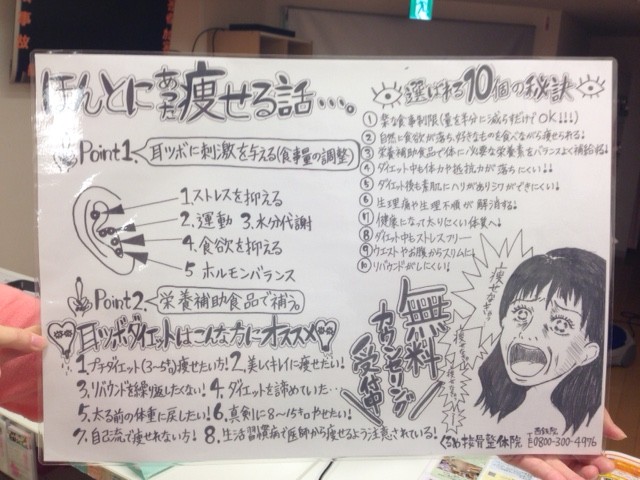 ほんとにあった痩せる話…。
Point1. 耳ツボに刺激を与える(食事量の調整)
1.ストレスを抑える
2.運動 3.水分代謝
4.食欲を抑える
5 ホルモンバランス
Point2. 栄養補助食品で補う。
耳ツボダイエットはこんな方にオススメ
1プチダイエット(3〜5kg)痩せたい方! 2.美しくキレイに痩せたい!
3.リバウンドを繰り返したくない! 4.ダイエットを諦めていた…
5.太る前の体重に戻したい! 6.真剣に8〜15キロやせたい!
7.自己流で痩せれない方! 8.生活習慣病で医師から痩せるよう注意されている!
選ばれる10個の秘訣
① 楽な食事制限(量を半分に減らすだけでOK!!!)
② 自然に食欲が落ち、好きなものを食べながら痩せられる!
③ 栄養補助食品で体に必要な栄養素をバランスよく補給!
④ ダイエット中も体力や抵抗力が落ちにくい!!
⑤ ダイエット後も素肌にハリがありシワができにくい!
⑥ 生理痛や生理不順が解消する!
⑦ 健康になって太りにくい体質へ!
⑧ ダイエット中もストレスフリー
⑨ ウエストやお腹からスリムに!
⑩ リバウンドがしにくい!
無料
カウンセリング
受付中
くるめ接骨整体院
TEL0800-300-4976